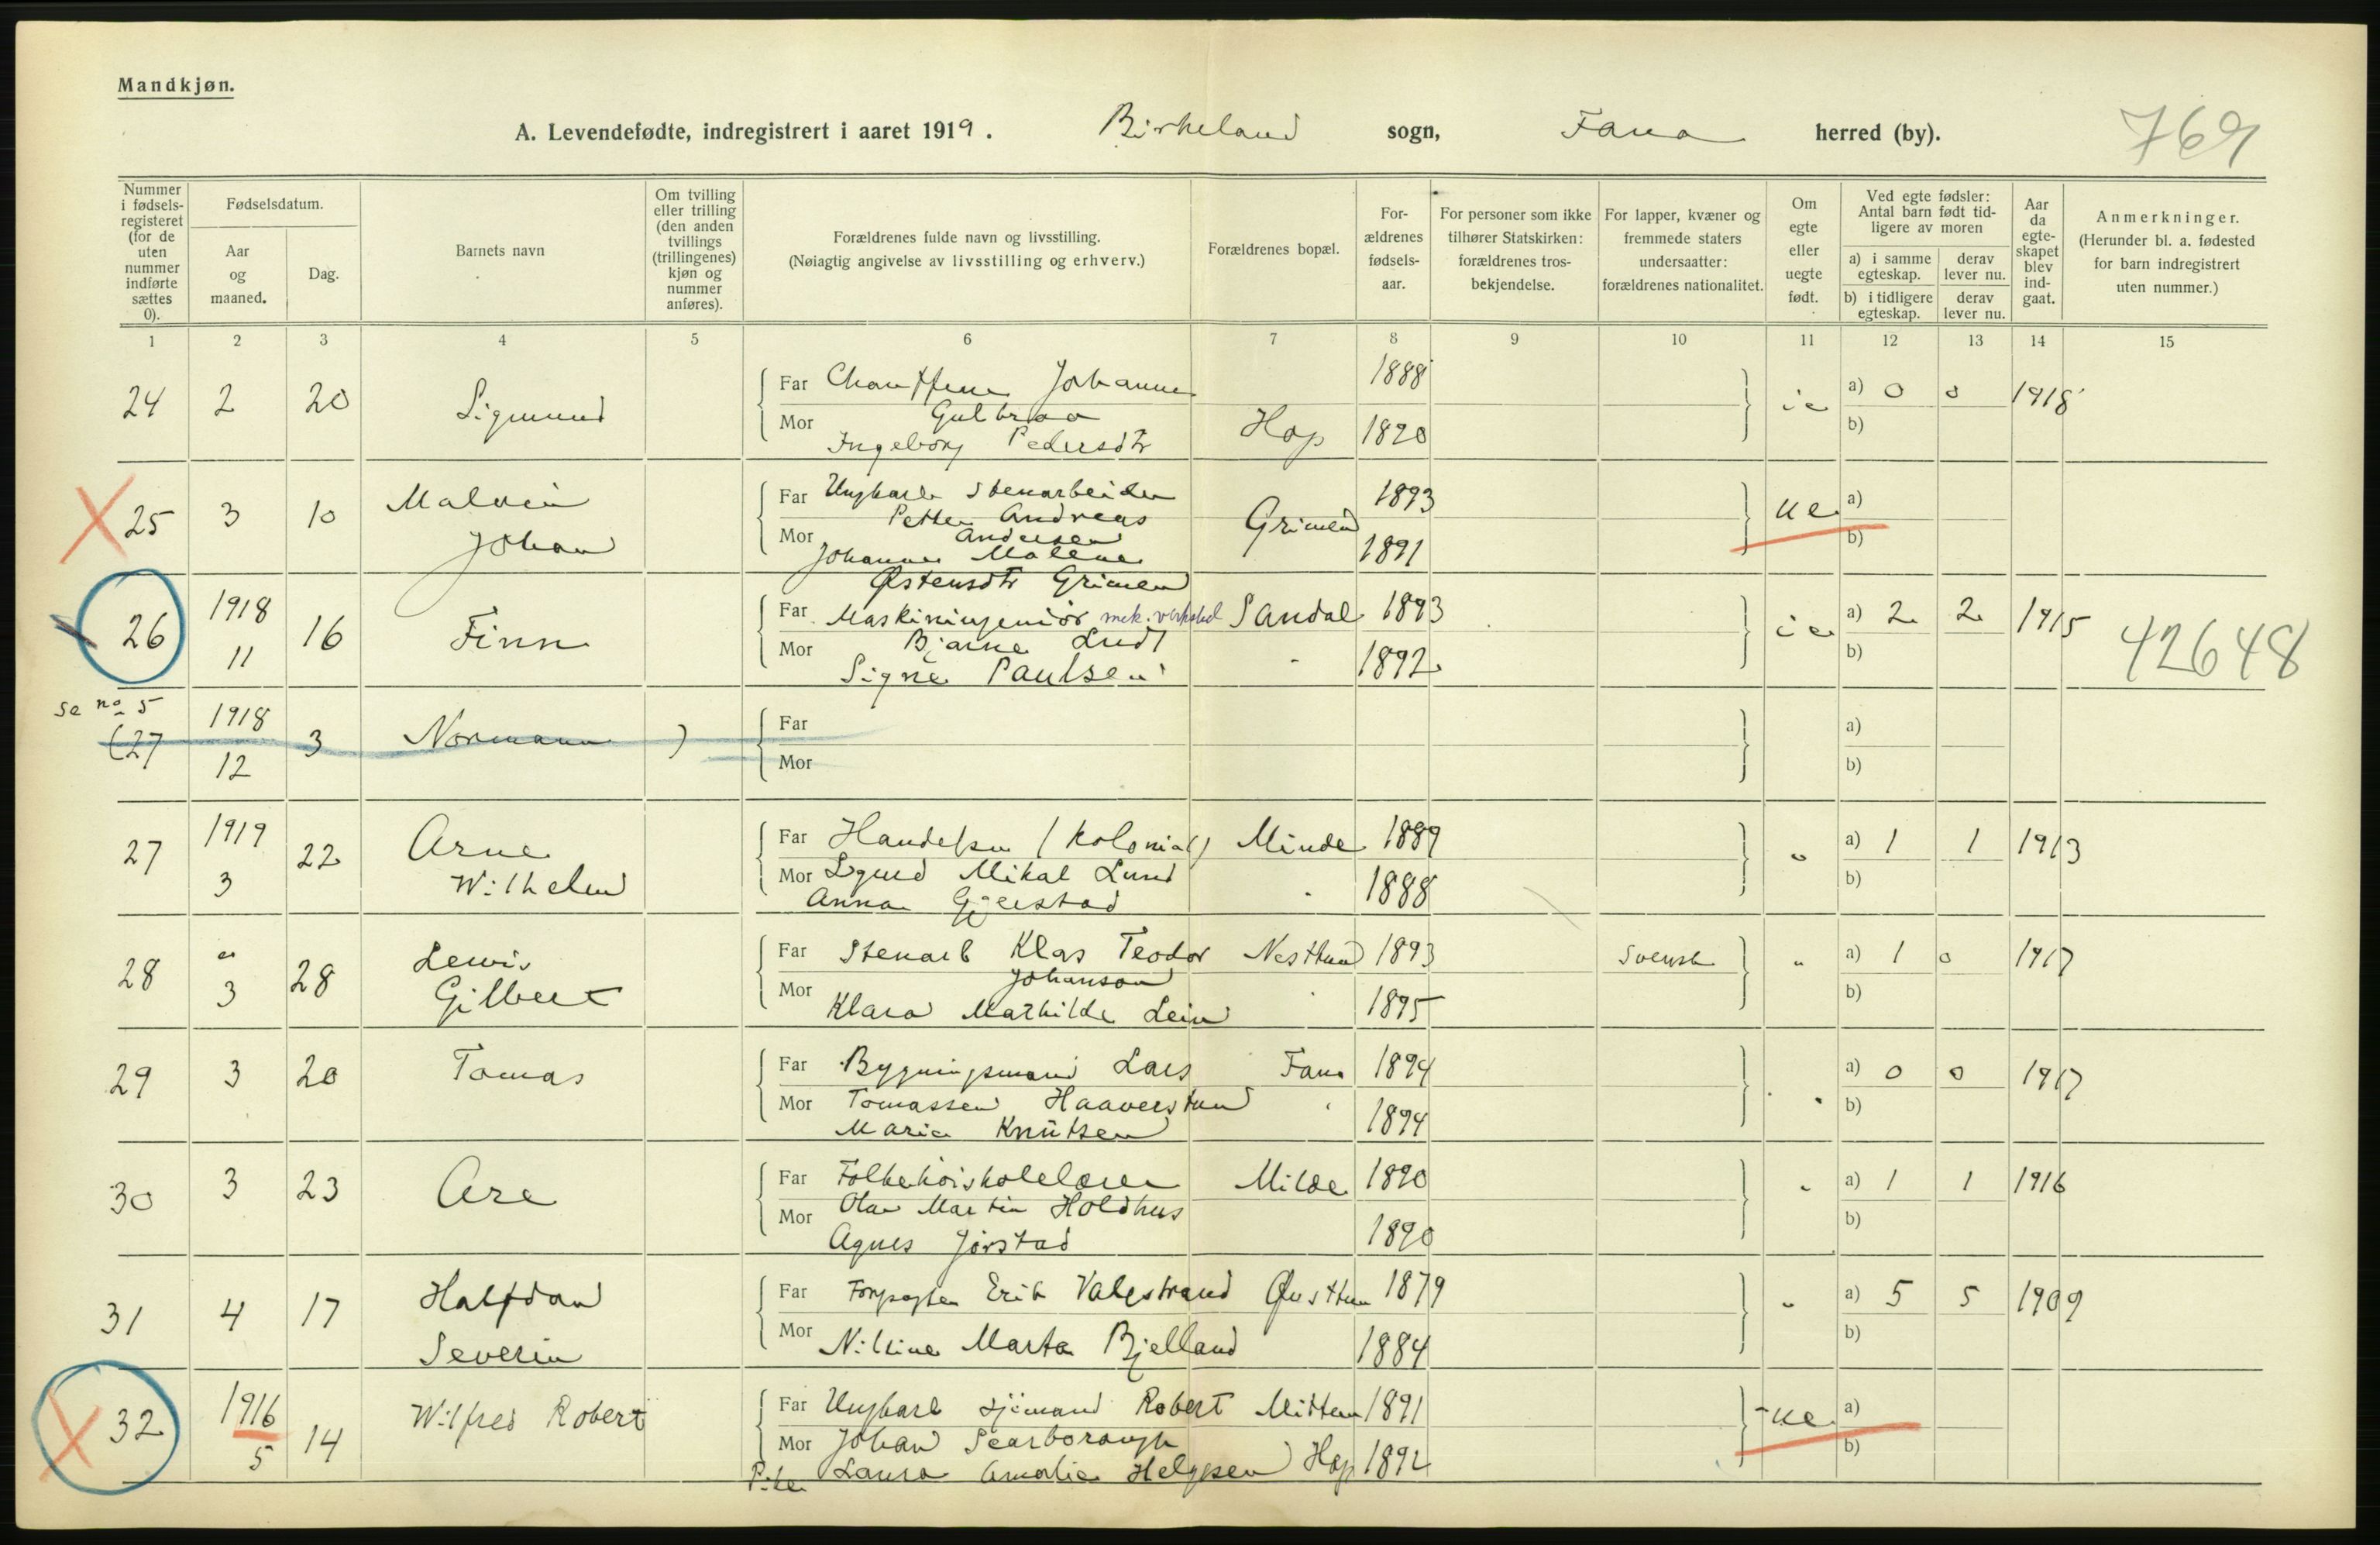 Mandkjøn.
A. Levendefødte, indregistrert i aaret 1919. Birkeland sogn, Fana herred (by). 769
Nummer i fødsels-registeret (for de uten nummer indførte sættes 0).
Fødselsdatum.
Aar og maaned.
Dag.
Barnets navn
Om tvilling eller trilling (den anden tvillings (trillingenes) kjøn og nummer anføres).
Forældrenes fulde navn og livsstilling.
(Nøiagtig angivelse av livsstilling og erhverv.)
Forældrenes bopæl.
For-ældrenes fødsels-aar.
For personer som ikke tilhører Statskirken: forældrenes tros-bekjendelse.
For lapper, kvæner og fremmede staters undersaatter: forældrenes nationalitet.
Om egte eller uegte født.
Ved egte fødsler: Antal barn født tid-ligere av moren
a) i samme egteskap. derav lever nu.
b) i tidligere egteskap. derav lever nu.
Aar da egte-skapet blev ind-gaat.
Anmerkninger.
(Herunder bl. a. fødested for barn indregistrert uten nummer.)
1 2 3 4 5 6 7 8 9 10 11 12 13 14 15
24 2 20 Sigmund Far Johannes 1888 a) 0 0 1918
Mor Hop 1890 b)
Ingeborg Pedersdtr
25 3 10 Malvin Far Ungkarl Stenarbeider 1893 ue a)
Petter Andreas Grimen
Johan Mor Andersen b)
Johanne Malene 1891
Østensdtr Grimen
26 1918 16 Finn Far Maskiningeniör mek. verksted Sandal 1893 a) 2 2 1915 42648
11 Mor Bjarne 1892 b)
Signe Paulsen
se no 5
(27 1918 3 Normann ) Far a)
12 Mor b)
27 1919 22 Arne Far (kolonial) Minde 1889 " a) 1 1 1913
3 Wilhelm Mor Mikal Lund 1888 b)
Anna Gjerstad
28 " 28 Lewis Far Stenarb Klas Teodor Nesttun 1893 svensk " a) 1 0 1917
3 Gilbert Mor Johanson b)
Klara Mathilde Lein 1895
29 3 20 Tomas Far Bygningsmand Lars Fana 1894 a) 0 0 1917
Mor Tomassen Haaverstun " 1894 b)
Maria Knutsen
30 3 23 Are Far Folkehöiskolelærer Milde 1890 " a) 1 1 1916
Mor Olav Martin Holdhus b)
Agnes Jörstad 1890
31 4 17 Halfdan Far Forpagter Erik Valestrand 1879 " a) 5 5 1909
Severin Mor Nilline Marta Bjelland 1884 b)
32 1916 14 Wilfred Robert Far Ungkarl sjömand Robert 1891 ue a)
5 Mor Johan Scarborough b)
Pike Laura Amalie Helgesen Hop 1892